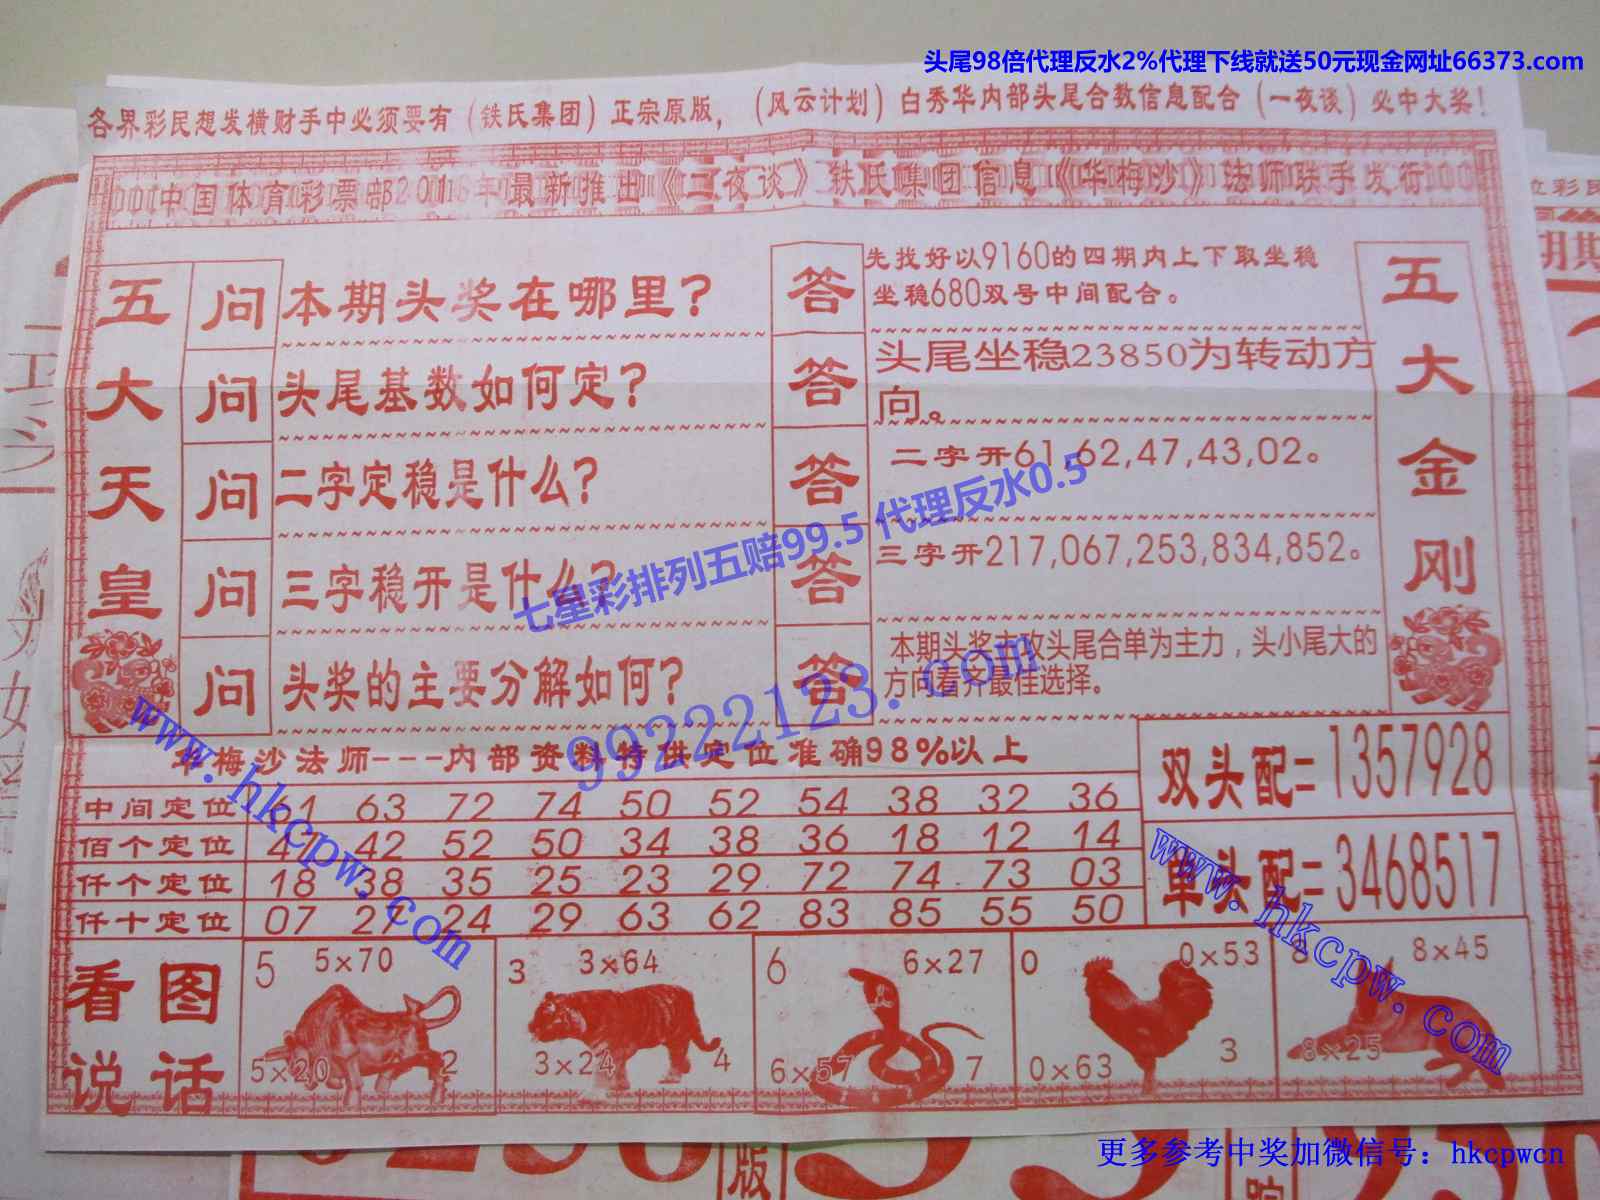 头尾98倍代理反水2%代理下线就送50元现金网址66373.com
各界彩民想发横财手中必须要有（铁氏集团）正宗原版，（风云计划）白秀华内部头尾合数信息配合（一夜谈）必中大奖！
中国体育彩票部2016年最新推出《二夜谈》铁氏集团信息《华梅沙》法师联手发行
五大天皇
问 本期头奖在哪里？
答 先找好以9160的四期内上下取坐稳
坐稳680双号中间配合。
问 头尾基数如何定？
答 头尾坐稳23850为转动方
向。
问 二字定稳是什么？
答 二字开61,62,47,43,02。
问 三字稳开是什么？
答 三字开217,067,253,834,852。
问 头奖的主要分解如何？
答 本期头奖主攻头尾合单为主力，头小尾大的
方向看齐最佳选择。
五大金刚
七星彩排列五赔99.5 代理反水0.5
99222123.com
www.hkcpw.com
华梅沙法师---内部资料特供定位准确98%以上
中间定位 61 63 72 74 50 52 54 38 32 36
佰个定位 42 52 50 34 38 36 18 12 14
仟个定位 18 38 35 25 23 29 72 74 73 03
仟十定位 07 27 24 29 63 62 83 85 55 50
双头配=1357928
单头配=3468517
www.hkcpw.com
看图
说话
5 5×70
5×20 2
3 3×64
3×24 4
6 6×27
6×57 7
0 0×53
0×63 3
8 8×45
8×25
版
更多参考中奖加微信号：hkcpwcn